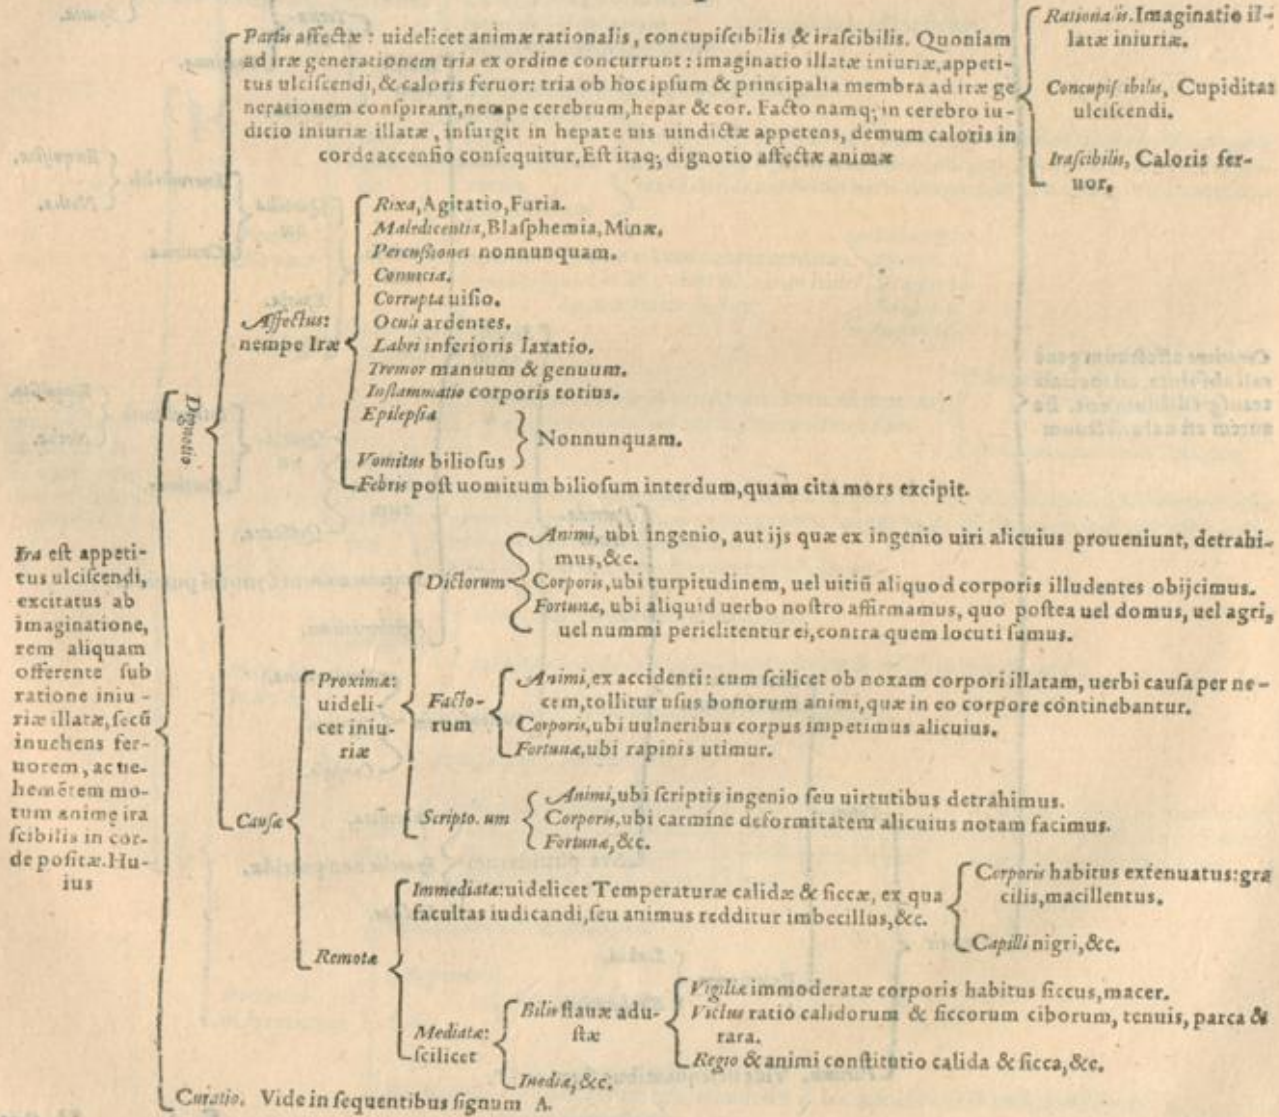 Ira est appeti-
tus ulciscendi,
excitatus ab
imaginatione,
rem aliquam
offerente sub
ratione iniu-
riæ illatæ, secũ
inuehens fer-
uorem, ac ue-
hemẽtem mo-
tum animę ira
scibilis in cor-
de positæ. Hu-
ius
Dignotio
Partis affectæ : uidelicet animæ rationalis, concupiscibilis & irascibilis. Quoniam
ad iræ generationem tria ex ordine concurrunt : imaginatio illatæ iniuriæ, appeti-
tus ulciscendi, & caloris feruor: tria ob hoc ipsum & principalia membra ad iræ ge
nerationem conspirant, nempe cerebrum, hepar & cor. Facto namq; in cerebro iu-
dicio iniuriæ illatæ, insurgit in hepate uis uindictæ appetens, demum caloris in
corde accensio consequitur. Est itaq; dignotio affectæ animæ
Rationalis. Imaginatio il-
latæ iniuriæ.
Concupiscibilis, Cupiditas
ulciscendi.
Irascibilis, Caloris fer-
uor.
Affectus:
nempe Iræ
Rixa, Agitatio, Furia.
Maledicentia, Blasphemia, Minæ.
Percussiones nonnunquam.
Conuicia.
Corrupta uisio.
Oculi ardentes.
Labri inferioris laxatio.
Tremor manuum & genuum.
Inflammatio corporis totius.
Epilepsia
Vomitus biliosus
Nonnunquam.
Febris post uomitum biliosum interdum, quam cita mors excipit.
Causæ
Proximæ:
uideli-
cet iniu-
riæ
Dictorum
Animi, ubi ingenio, aut ijs quæ ex ingenio uiri alicuius proueniunt, detrahi-
mus, &c.
Corporis, ubi turpitudinem, uel uitiũ aliquod corporis illudentes obijcimus.
Fortunæ, ubi aliquid uerbo nostro affirmamus, quo postea uel domus, uel agri,
uel nummi periclitentur ei, contra quem locuti sumus.
Facto-
rum
Animi, ex accidenti: cum scilicet ob noxam corpori illatam, uerbi causa per ne-
cem, tollitur usus bonorum animi, quæ in eo corpore continebantur.
Corporis, ubi uulneribus corpus impetimus alicuius.
Fortunæ, ubi rapinis utimur.
Scriptorum
Animi, ubi scriptis ingenio seu uirtutibus detrahimus.
Corporis, ubi carmine deformitatem alicuius notam facimus.
Fortunæ, &c.
Remotæ
Immediatæ: uidelicet Temperaturæ calidæ & siccæ, ex qua
facultas iudicandi, seu animus redditur imbecillus, &c.
Corporis habitus extenuatus: gra
cilis, macillentus.
Capilli nigri, &c.
Mediatæ:
scilicet
Bilis flauæ adu-
stæ
Vigiliæ immoderatæ corporis habitus siccus, macer.
Victus ratio calidorum & siccorum ciborum, tenuis, parca &
rara.
Regio & animi constitutio calida & sicca, &c.
Inediæ, &c.
Curatio. Vide in sequentibus signum A.